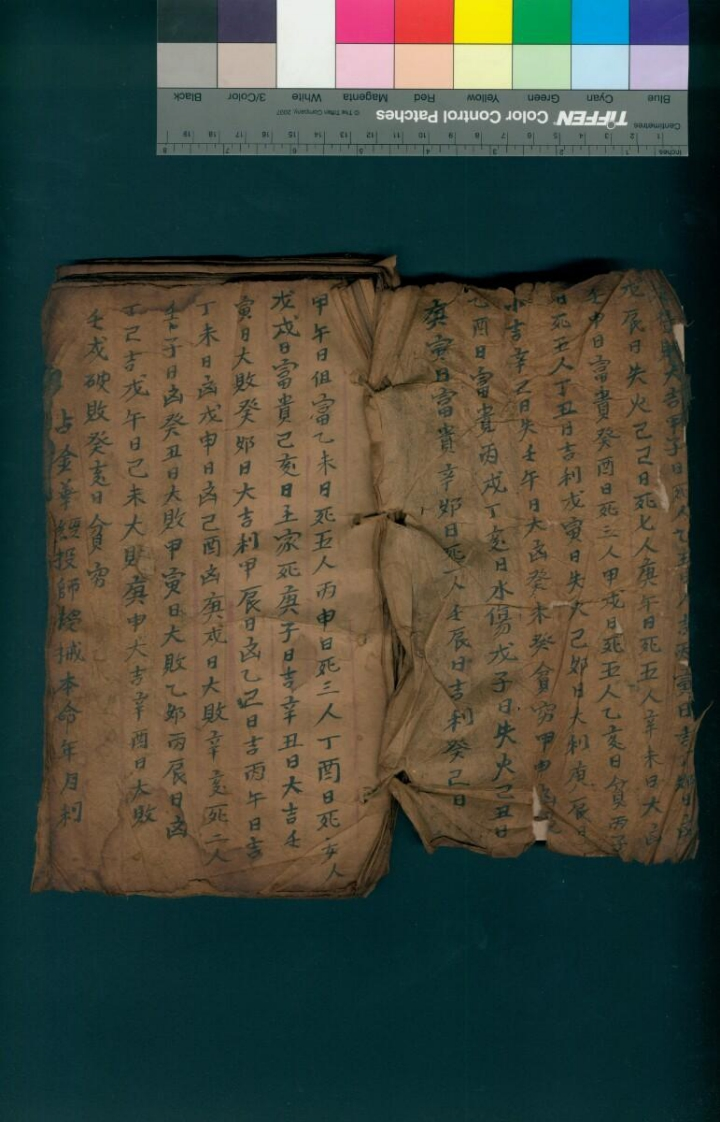 Blue Cyan Green Yellow Red Magenta White 3/Color Black
TIFFEN Color Control Patches © The Tiffen Company, 2007
Centimetres
Inches
大吉甲子日
戊辰日失火己巳日死七人庚午日死五人辛未日大凶
壬申日富貴癸酉日死三人甲戌日死五人乙亥日貧丙子
日死五人丁丑日吉利戊寅日失火己卯日大利庚辰日
小吉辛巳日失壬午日大凶癸未癸貧窮甲申
乙酉日富貴丙戌丁亥日水傷戊子日失火己丑日
庚寅日富貴辛卯日死人壬辰日吉利癸巳日
甲午日但富乙未日死五人丙申日死三人丁酉日死女人
戊戌日富貴己亥日王家死庚子日吉辛丑日大吉壬
寅日大敗癸卯日大吉利甲辰日凶乙巳日吉丙午日吉
丁未日凶戊申日凶己酉凶庚戌日大敗辛亥死二人
壬子日凶癸丑日大敗甲寅日大敗乙卯丙辰日凶
丁巳吉戊午日己未大敗庚申大吉辛酉日大敗
壬戌破敗癸亥日貧窮
占金華經投師本命年月利